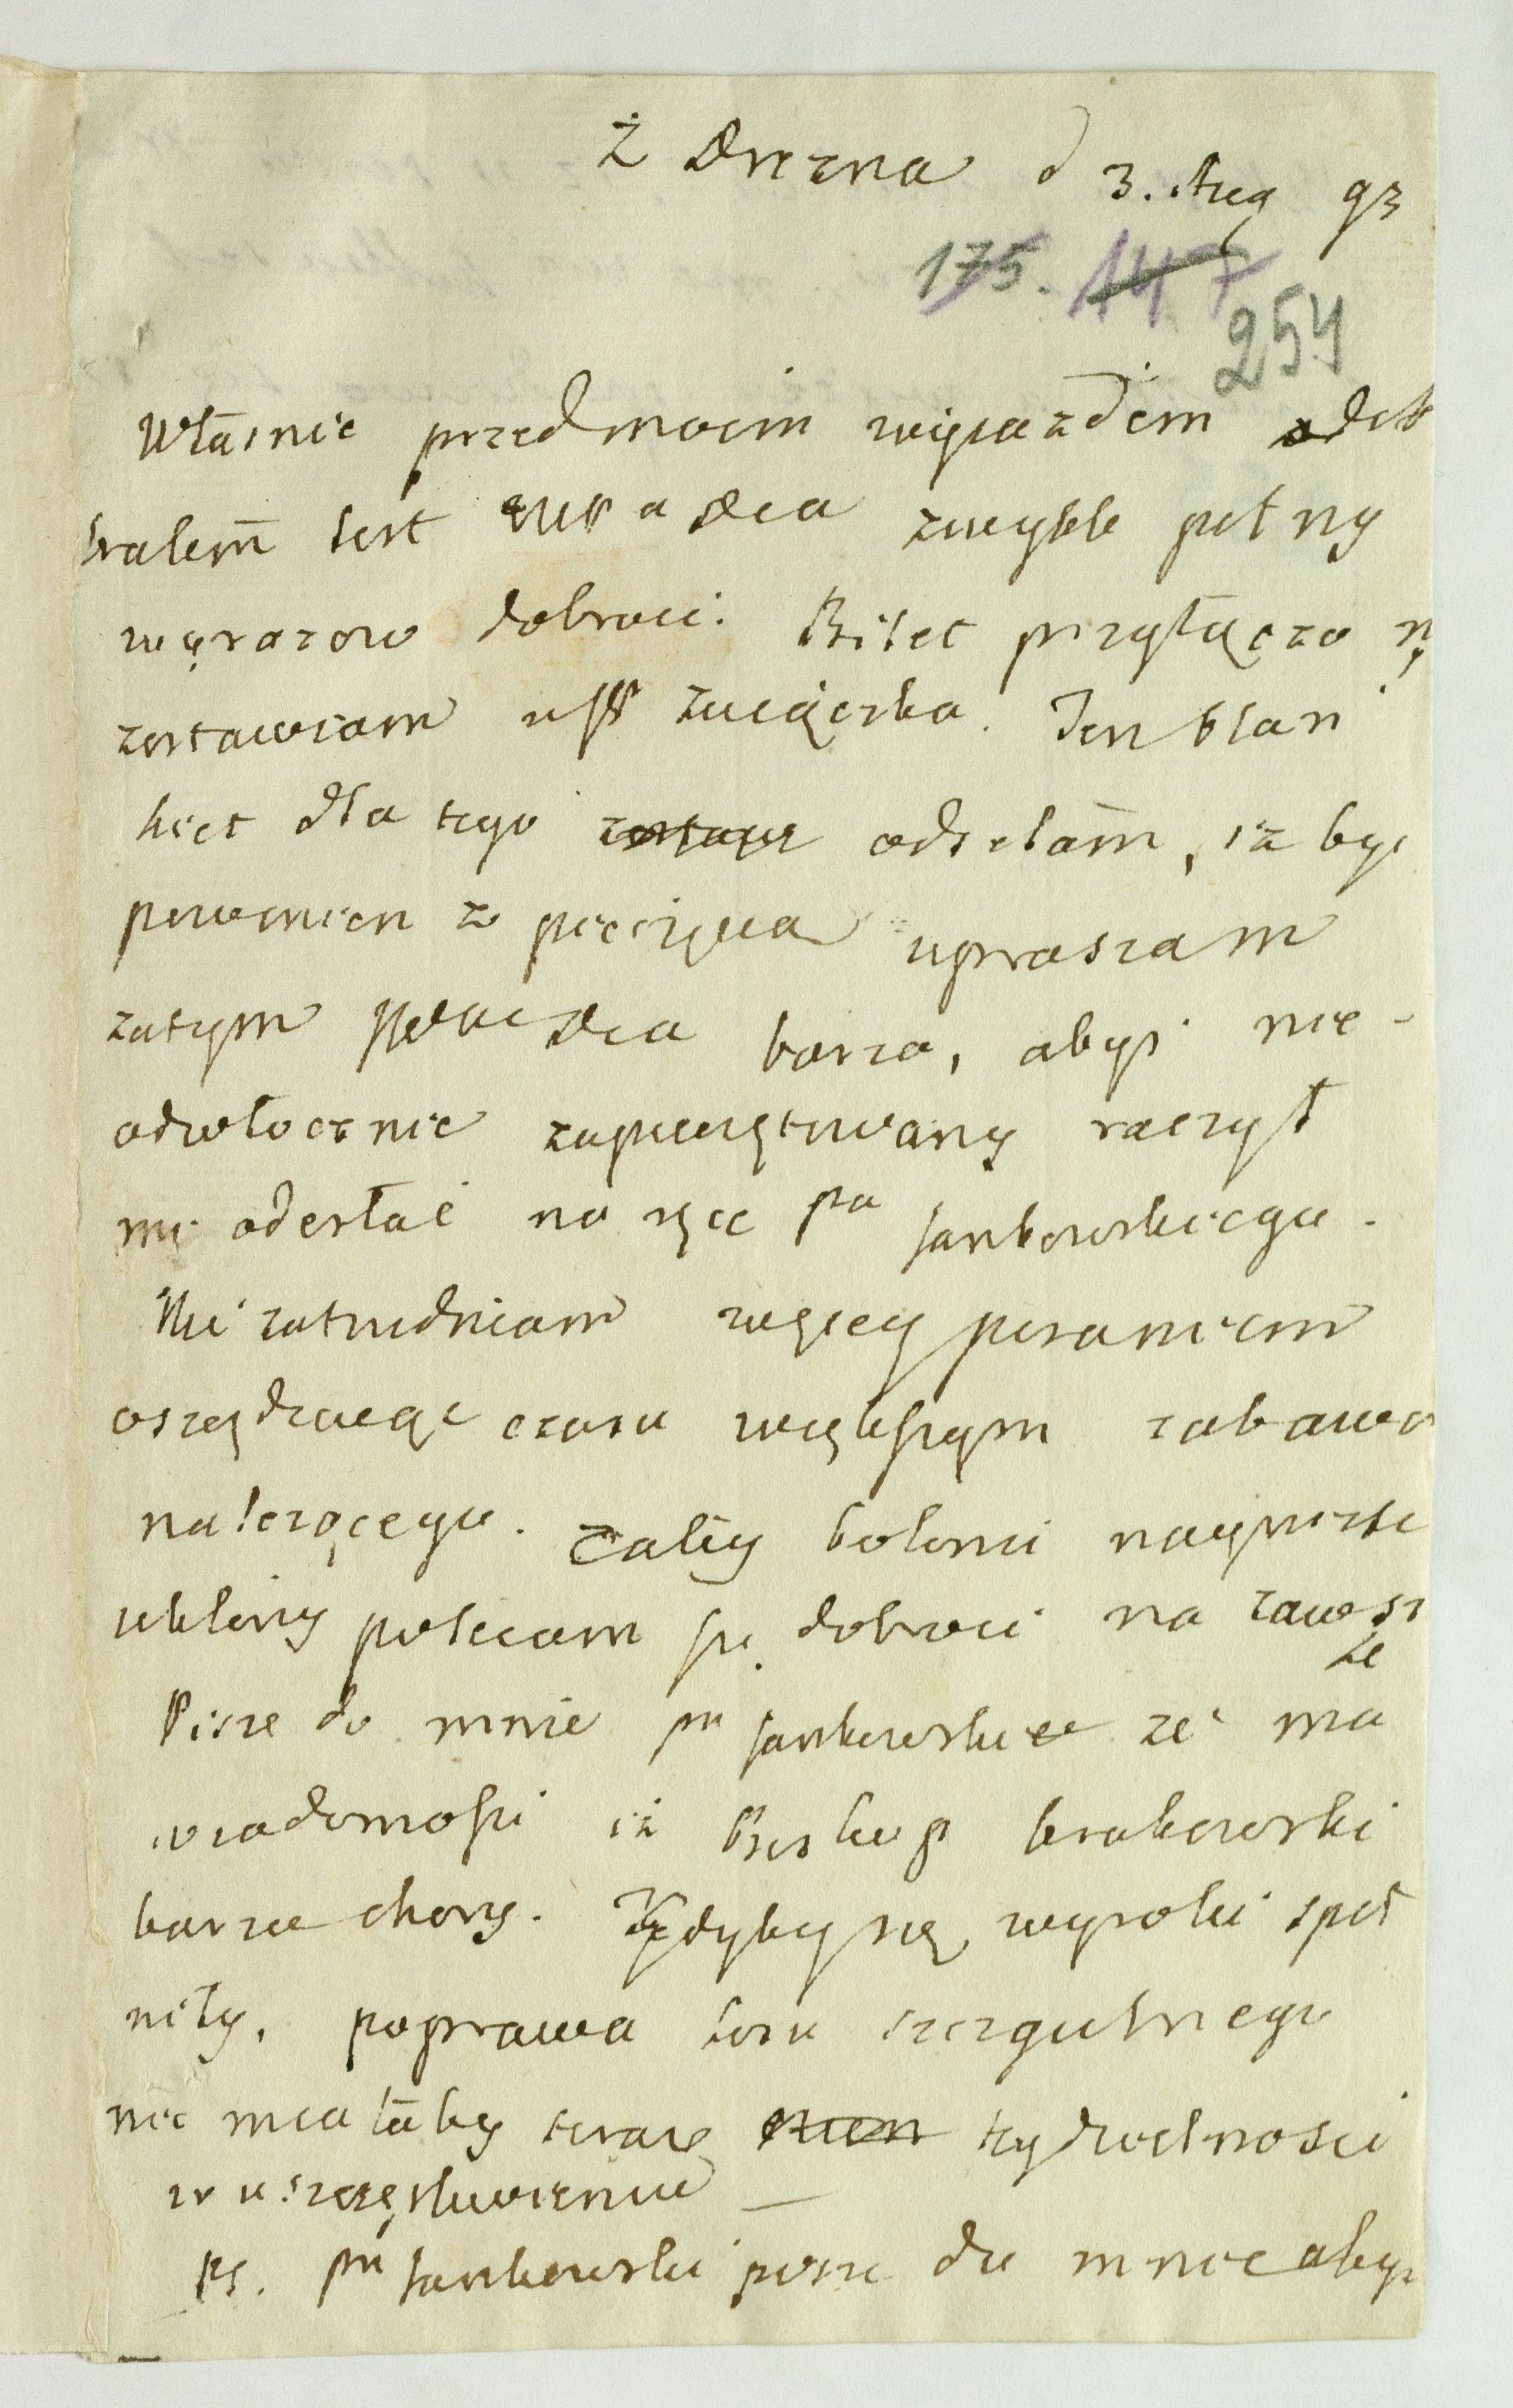 Z Drezna d 3. Aug 93
175. 147
254
Własnie przed moim wyiazdem odeb
rałem list Dla zwykle pełny
wyrazow dobroci. Bilet przyłączo ny
zostawiam Zwiączka. Ten blan
kiet dla tego odsełam, iż być
powinien z pieczęcia upraszam
zatym Dla barzo, abyś nie-
odwłocznie zapieczętowany raczył
mi odesłać na ręce pa Jankowskiego.
Nie zatrudniam więcey pisaniem
oszczędzaiąc czasu większym zabawo
należącego. Caley kolonii nayniższe
ukłony polecam się dobroci na zawsz
ze
Pisze do mnie pn Jankowski że ma
wiadomości iż Biskup krakowski
barzo chory. Gdyby się wyroki speł
niły, poprawa losu szczegulnego
nie miałaby teraz tey dzielności
w uszczęsliwieniu —
PS. pn Jankowski pisze do mnie abyś